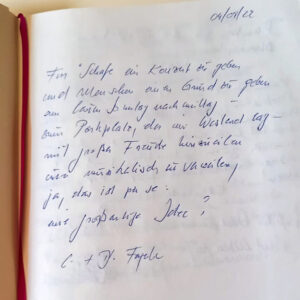 04/09/22
Für Schafe ein Konzert zu geben
und Menschen einen Grund zu geben
am Sonntag nachmittag
zum Parkplatz, der im Westend lag –
mit großer Freude hinzueilen
und musikalisch zu verweilen,
ja, das ist per se
eine großartige Idee!
C. + D.